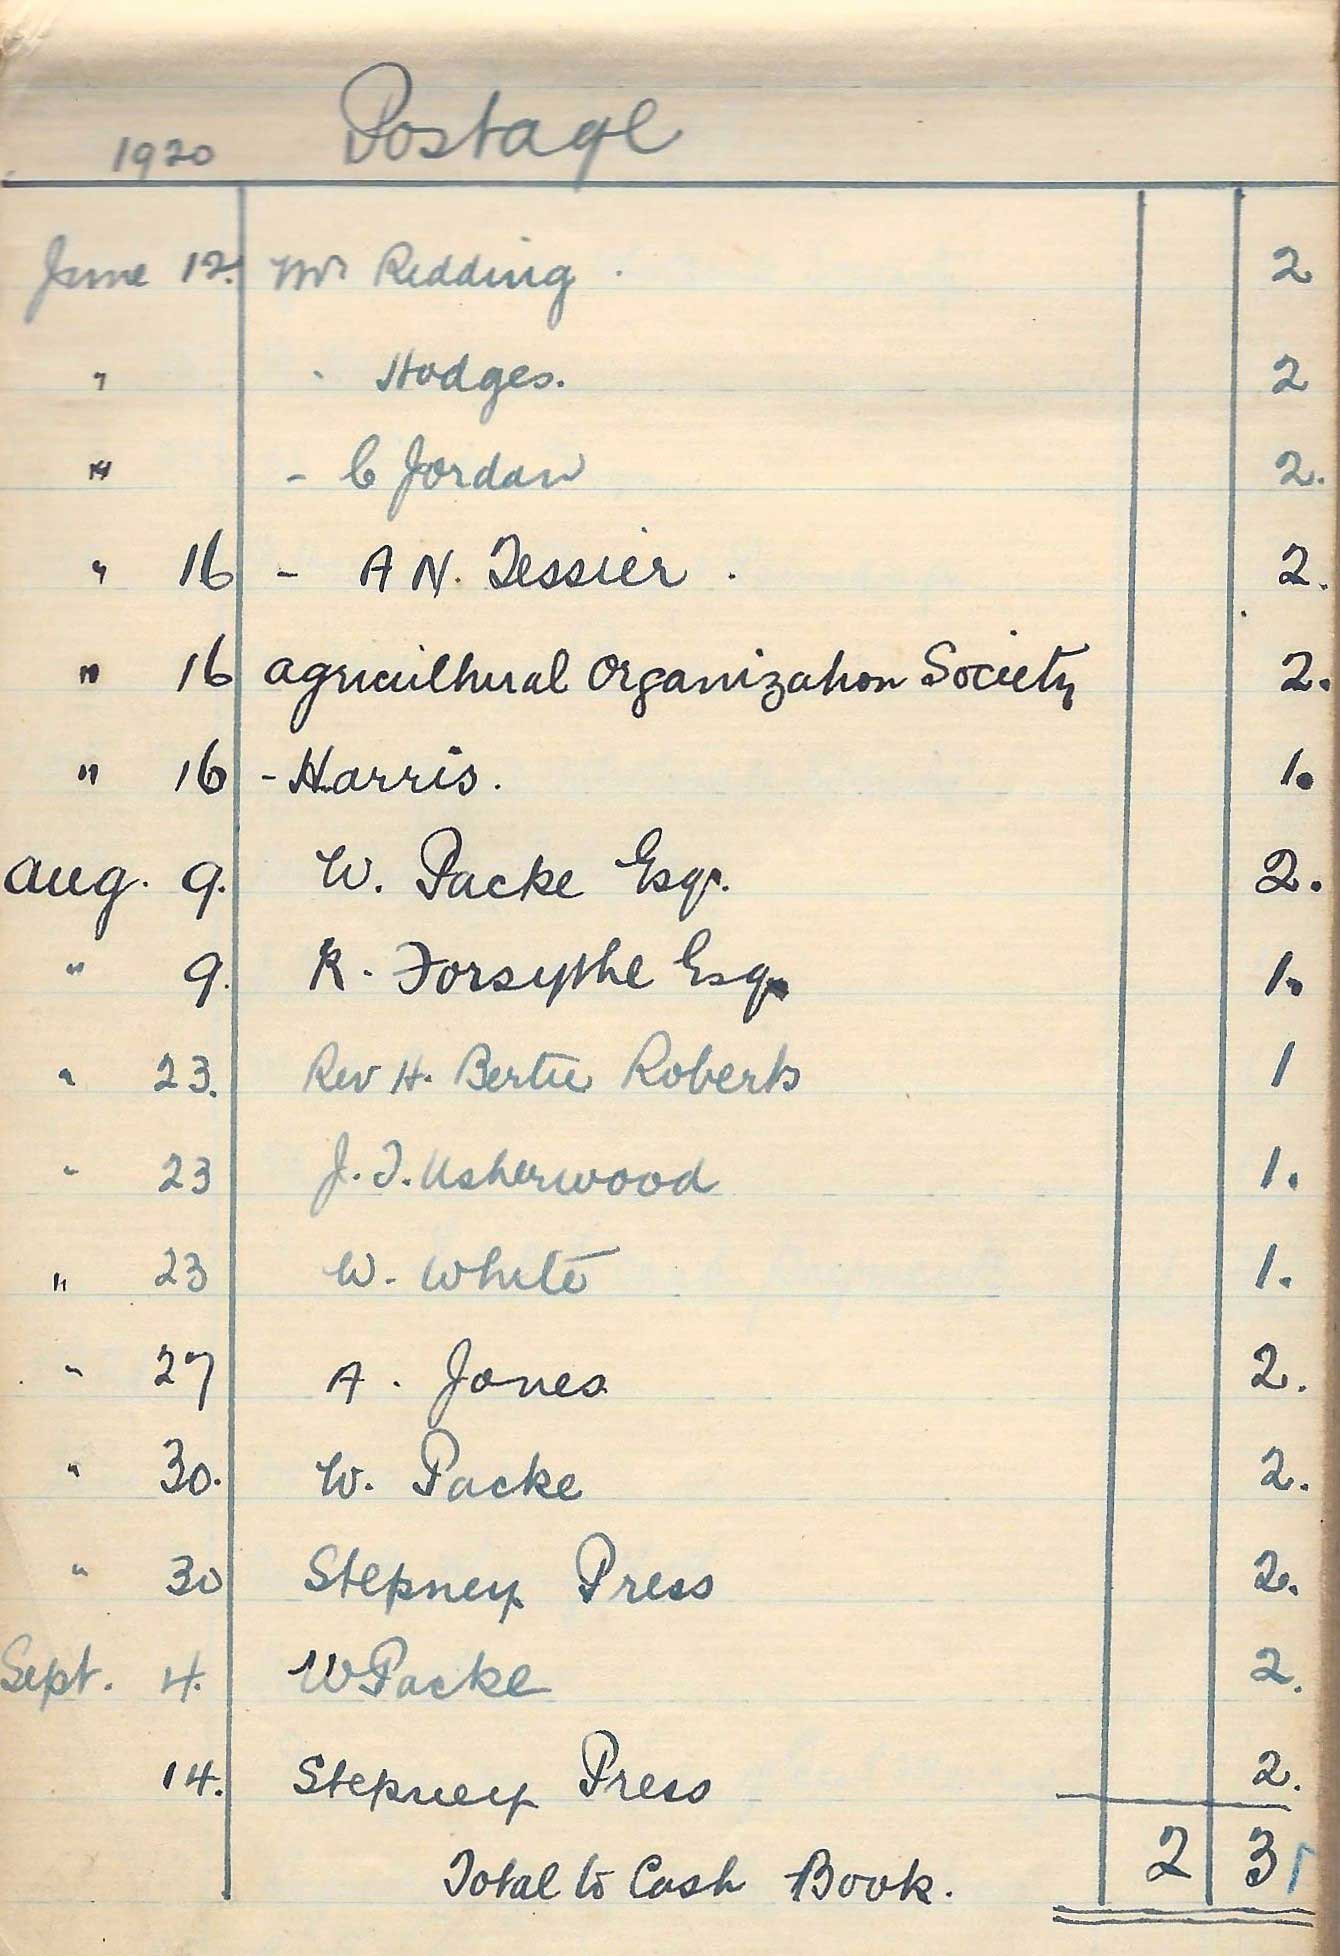 1920 Postage
June 12. Mr Redding . 2
" " Hodges. 2
" - C Jordan 2.
" 16 - A N. Tessier . 2.
" 16 Agricultural Organization Society 2.
" 16 - Harris. 1.
Aug. 9. W. Packe Esq. 2.
" 9. R. Forsythe Esq. 1.
" 23. Rev H. Bertie Roberts 1
" 23 J. T. Usherwood 1.
" 23 W. White 1.
" 27 A. Jones 2.
" 30. W. Packe 2.
" 30 Stepney Press 2.
Sept. 4. W Packe 2.
14. Stepney Press 2.
Total to Cash Book. 2 3